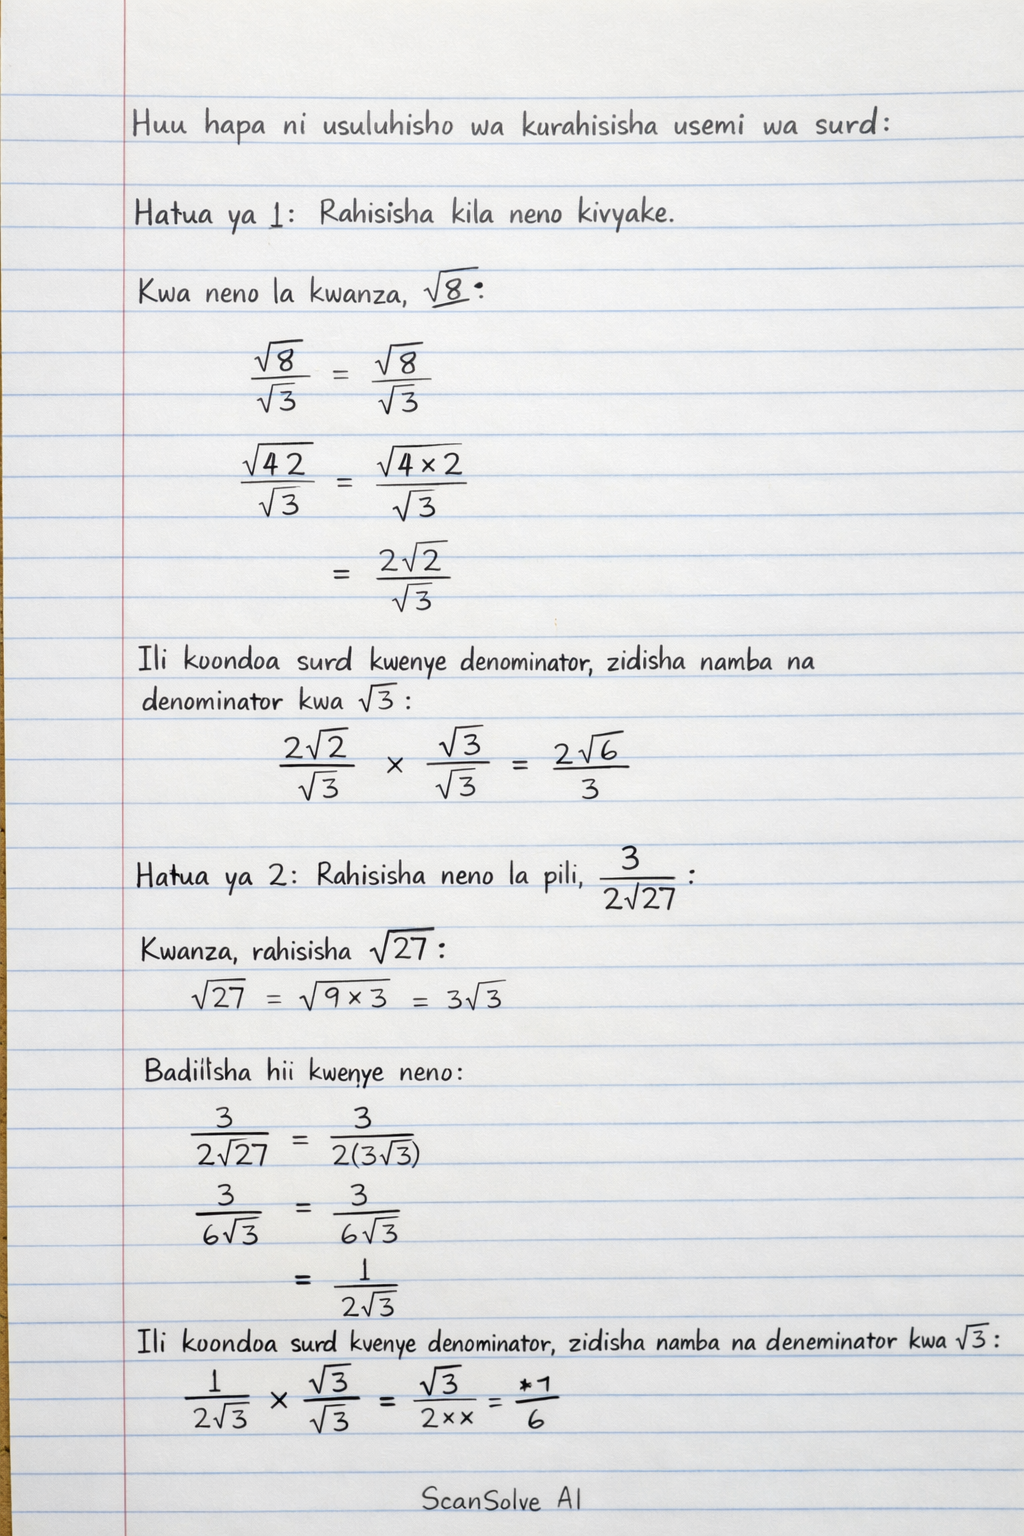 Huu hapa ni usuluhisho wa kurahisisha usemi wa surd:
Hatua ya 1: Rahisisha kila neno kivyake.
Kwa neno la kwanza, √8:
√8/√3 = √8/√3
√42/√3 = √4×2/√3
= 2√2/√3
Ili koondoa surd kwenye denominator, zidisha namba na
denominator kwa √3:
2√2/√3 × √3/√3 = 2√6/3
Hatua ya 2: Rahisisha neno la pili, 3/2√27:
Kwanza, rahisisha √27:
√27 = √9×3 = 3√3
hii kwenye neno:
3/2√27 = 3/2(3√3)
3/6√3 = 3/6√3
= 1/2√3
Ili koondoa surd kvenye denominator, zidisha namba na deneminator kwa √3:
1/2√3 × √3/√3 = √3/2×× = /6
ScanSolve AI